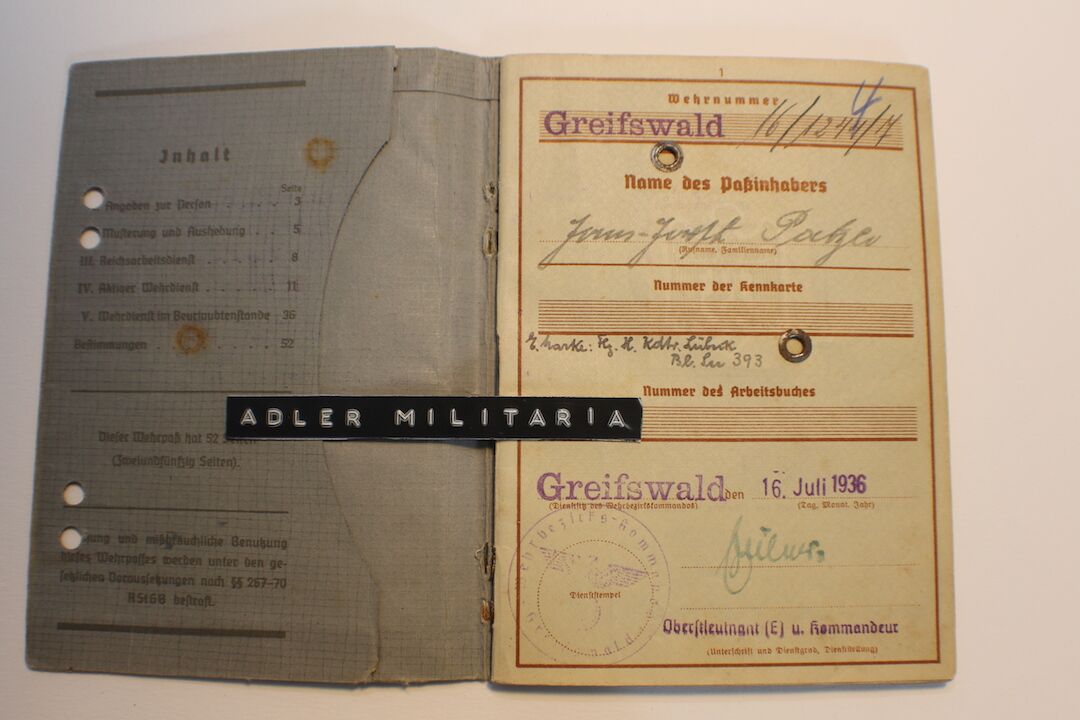 Inhalt
Seite
Angaben zur Person . . . . . 3
Musterung und Aushebung . . 5
III. Reichsarbeitsdienst . . . . . 8
IV. Aktiver Wehrdienst . . . . . 11
V. Wehrdienst im Beurlaubtenstande 36
Bestimmungen . . . . . 52
Dieser Wehrpaß hat 52 Seiten
(Zweiundfünfzig Seiten).
und mißbräuchliche Benutzung
dieses Wehrpasses werden unter den ge-
setzlichen Voraussetzungen nach §§ 267–70
RStGB bestraft.
ADLER MILITARIA
1
Wehrnummer
Greifswald 16/
Name des Paßinhabers
(Rufname, Familienname)
Nummer der Kennkarte
Lübeck
393
Nummer des Arbeitsbuches
Greifswald den 16. Juli 1936
(Dienstsitz des Wehrbezirkskommandos) (Tag, Monat, Jahr)
Wehrbezirks-Kommando
Dienststempel
Oberstleutnant (E) u. Kommandeur
(Unterschrift und Dienstgrad, Dienststellung)